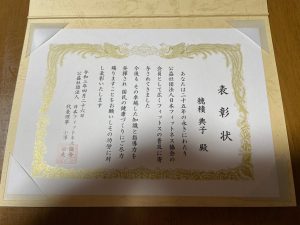 表彰状
穂積 典子 殿
あなたは二十五年の永きにわたり
公益社団法人日本フィットネス協会の
会員として広くフィットネスの普及に寄
与されてきました
今後も その卓越した知識と指導力を
発揮され 国民の健康づくりにご尽力
賜りますことをお願いしその功労に対
し表彰いたします
令和三年四月二十六日
公益社団法人 日本フィットネス協会
代表理事